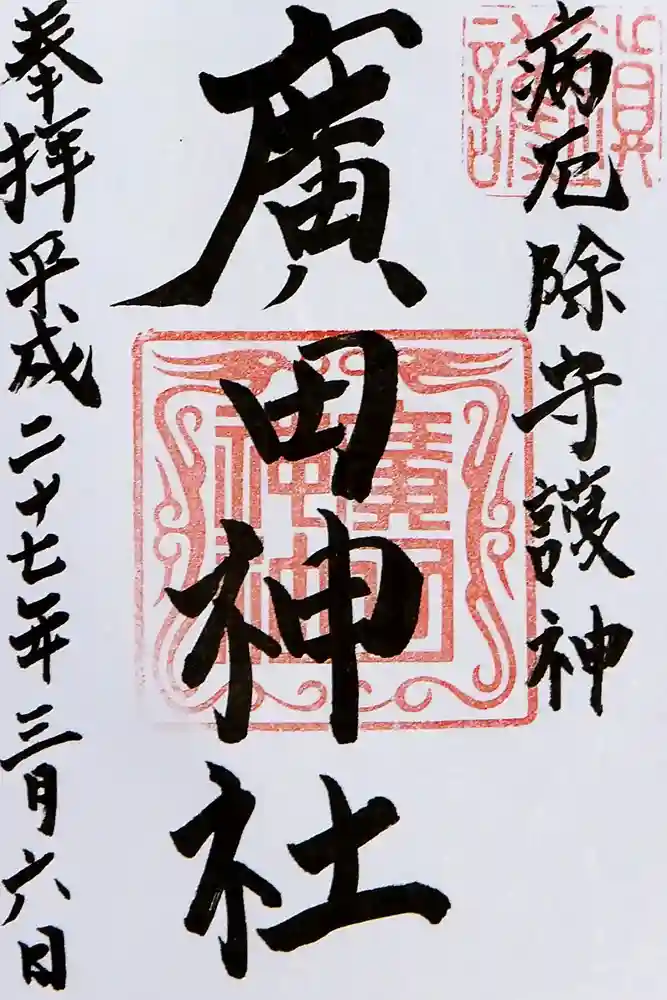 病厄除守護神
廣田神社
奉拝平成二十七年三月六日
廣田
神社